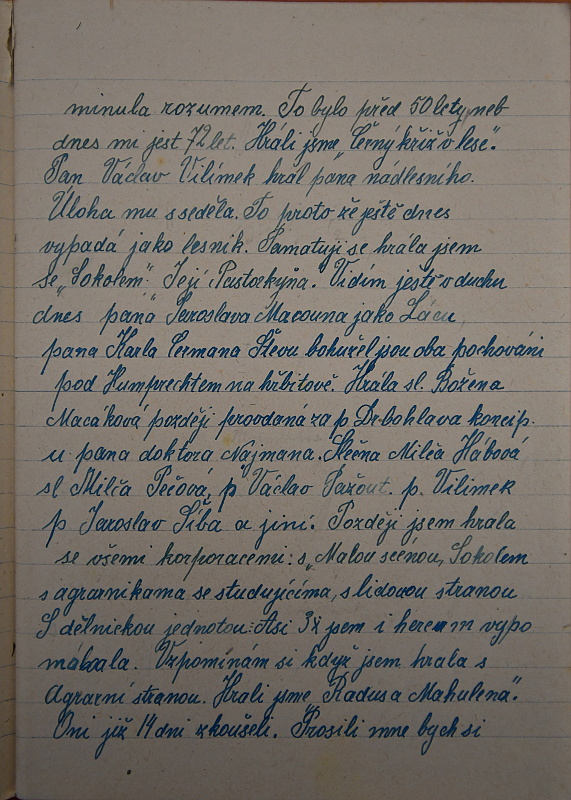 minula rozumem. To bylo před 50 lety, neb
dnes mi jest 72 let. Hráli jsme „Černý kříž v lese".
Pan Václav Vilímek hrál pána nadlesního.
Úloha mu sseděla. To proto že ještě dnes
vypadá jako lesník. Pamatuji se hrála jsem
se „Sokolem" Její Pastorkyňa. Vidím ještě v duchu
dnes pana Jaroslava Macouna jako Lácu,
pana Karla Čermana Števu bohužel jsou oba pochováni
pod Humprechtem na hřbitově. Hrála sl. Božena
Macáková později provdaná za p. Drbohlava koncip.
u pana doktora Najmana. Slečna Milča Hábová
sl Milča Pečová, p Václav Pažout. p. Vilímek
p Jaroslav Šíba a jiní. Později jsem hrala
se všemi korporacemi: s „Malou scénou, Sokolem
s agrarníkama se studujícíma, s lidovou stranou
S dělnickou jednotou. Asi 3x jsem i hercům vypo
máhala. Vzpomínám si když jsem hrala s
Agrarní stranou. Hráli jsme „Radúz a Mahulena".
Oni již 14 dní zkoušeli. Prosili mne bych si